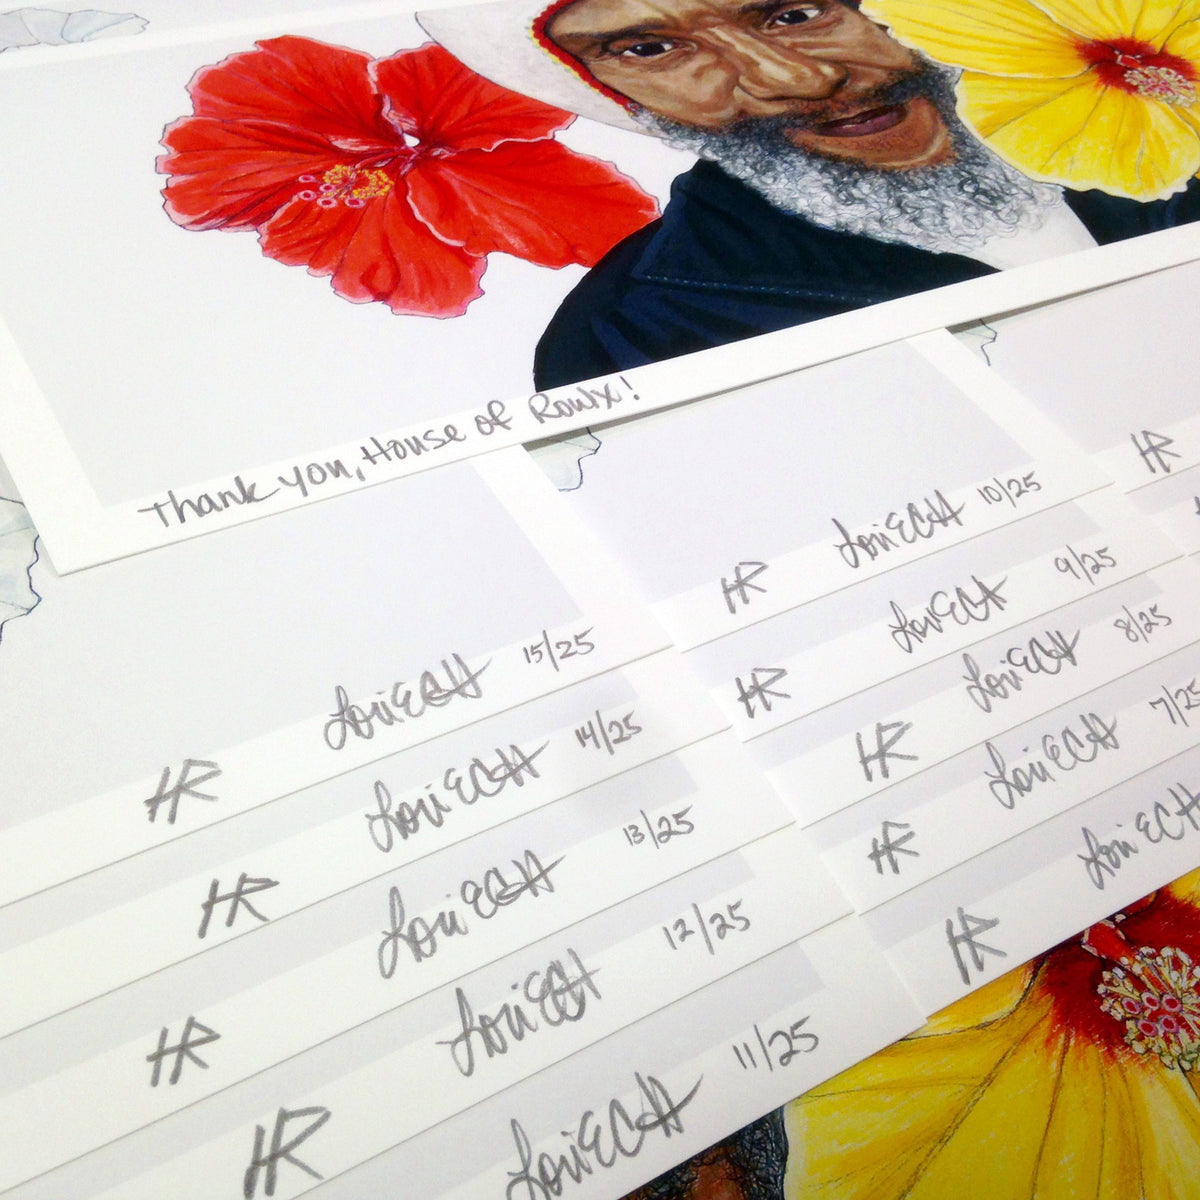 Thank you, House of Roulx!
HR
HR LoriECH 10/25
HR LoriECH 9/25
HR LoriECH 8/25
HR LoriECH 7/25
HR LoriECH
HR LoriECH 15/25
HR LoriECH 14/25
HR LoriECH 13/25
HR LoriECH 12/25
LoriECH 11/25